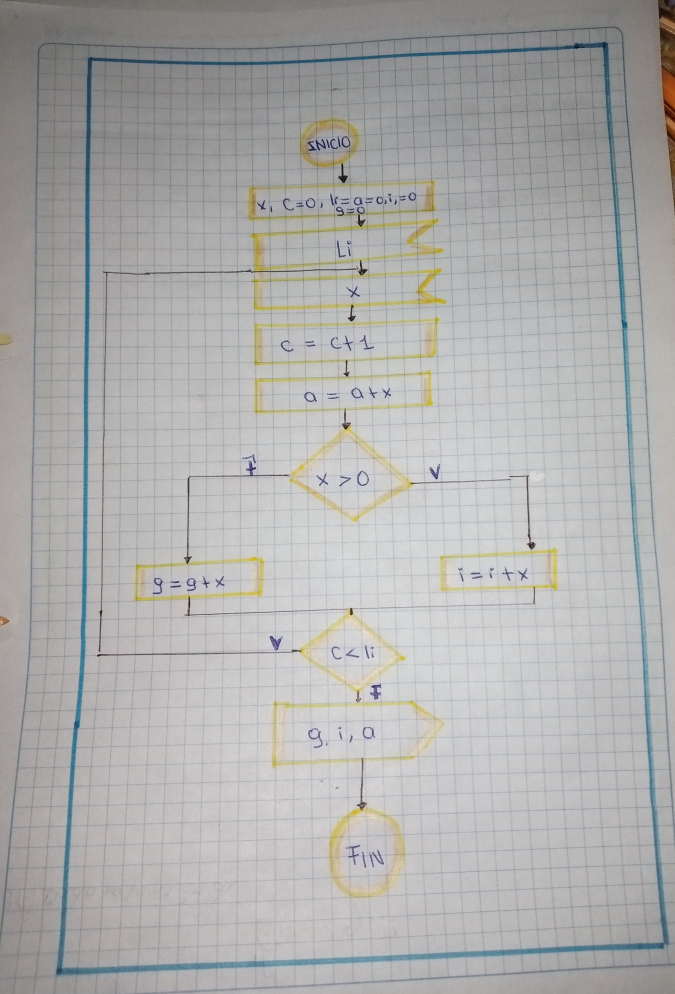 INICIO
x, C=0, li=a=0,i,=0
g=0
Li
x
c = c+1
a = a+x
x > 0
F
V
g=g+x
i=i+x
C < li
V
F
g. i, a
FIN